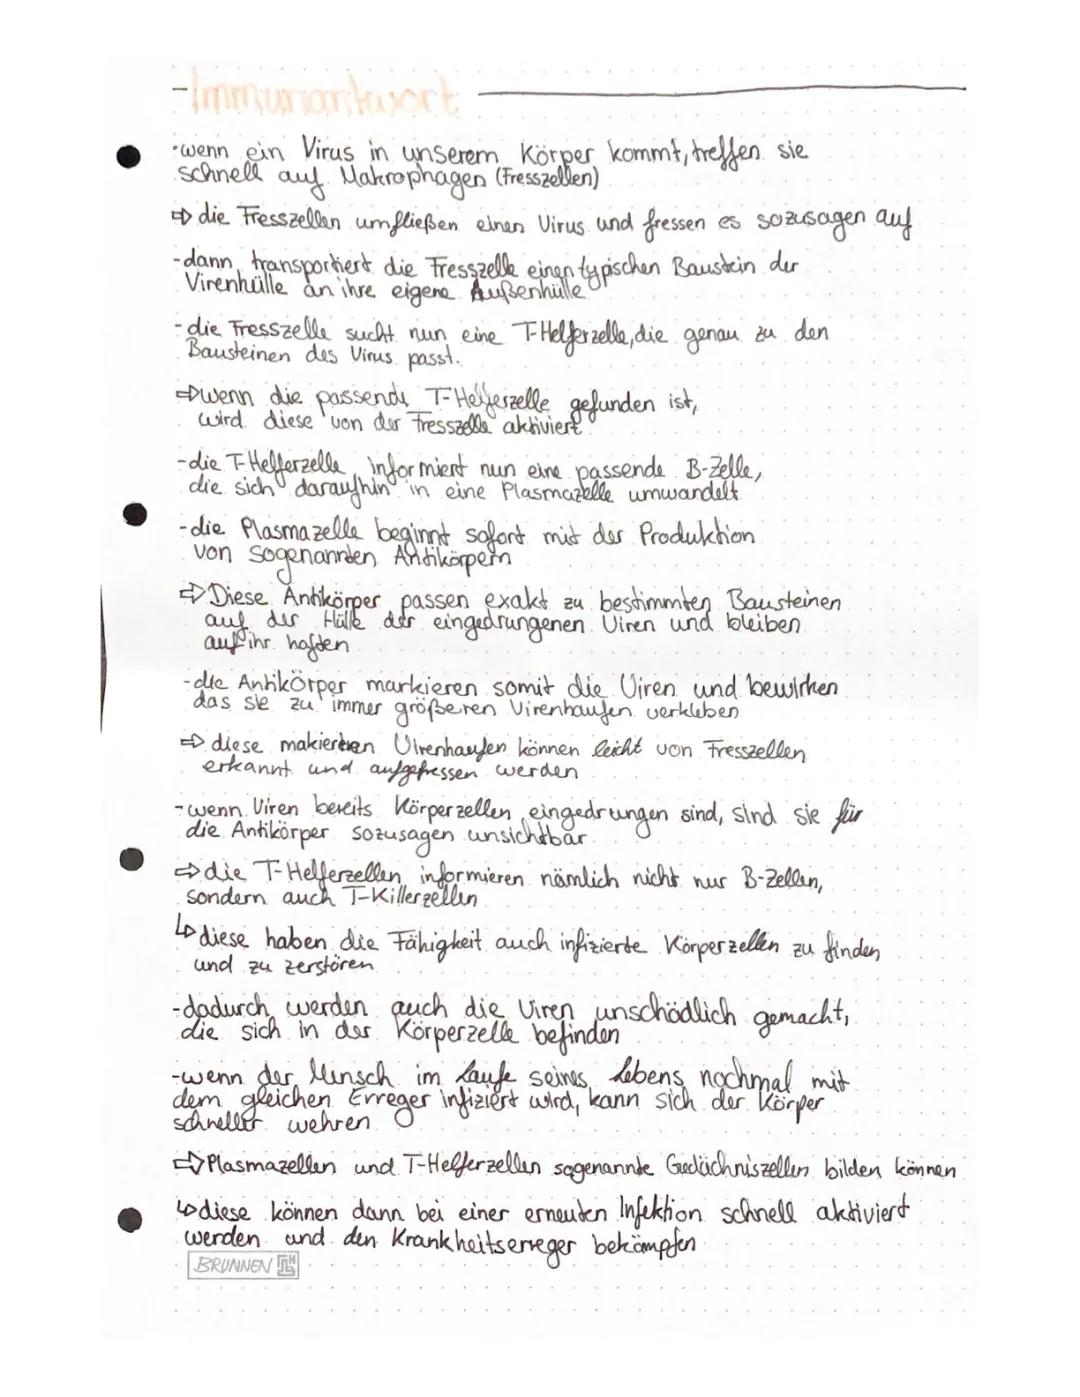 - Immunantwort
·wenn ein Virus in unserem Körper kommt, treffen sie
schnell auf Makrophagen (Fresszellen)
⇨ die Fresszellen umfließen einen Virus und fressen es sozusagen auf
-dann transportiert die Fresszelle einen typischen Baustein der
Virenhülle an ihre eigene Außenhülle
-die Fresszelle sucht nun eine T-Helferzelle, die genau zu den
Bausteinen des Virus passt.
⇨wenn die passende T-Helferzelle gefunden ist,
wird diese von der Fresszelle aktiviert
-die T-Helferzelle informiert nun eine passende B-Zelle,
die sich daraufhin in eine Plasmazelle umwandelt
-die Plasmazelle beginnt sofort mit der Produktion
von sogenannten Antikörpern
⇨Diese Antikörper passen exakt zu bestimmten Bausteinen
auf der Hülle der eingedrungenen Viren und bleiben
auf ihr haften
-die Antikörper markieren somit die Viren und bewirken
das sie zu immer größeren Virenhaufen verkleben
⇨ diese makierten Virenhaufen können leicht von Fresszellen
erkannt und aufgefressen werden
-wenn Viren bereits Körperzellen eingedrungen sind, sind sie für
die Antikörper sozusagen unsichtbar
⇨die T-Helferzellen informieren nämlich nicht nur B-Zellen,
sondern auch T-Killerzellen
↳diese haben die Fähigkeit auch infizierte Körperzellen zu finden
und zu zerstören
-dadurch werden auch die Viren unschädlich gemacht,
die sich in der Körperzelle befinden
-wenn der Mensch im Laufe seines Lebens nochmal mit
dem gleichen Erreger infiziert wird, kann sich der Körper
schneller wehren
⇨Plasmazellen und T-Helferzellen sogenannte Gedächniszellen bilden können
↳diese können dann bei einer erneuten Infektion schnell aktiviert
werden und den Krankheitserreger bekämpfen
BRUNNEN